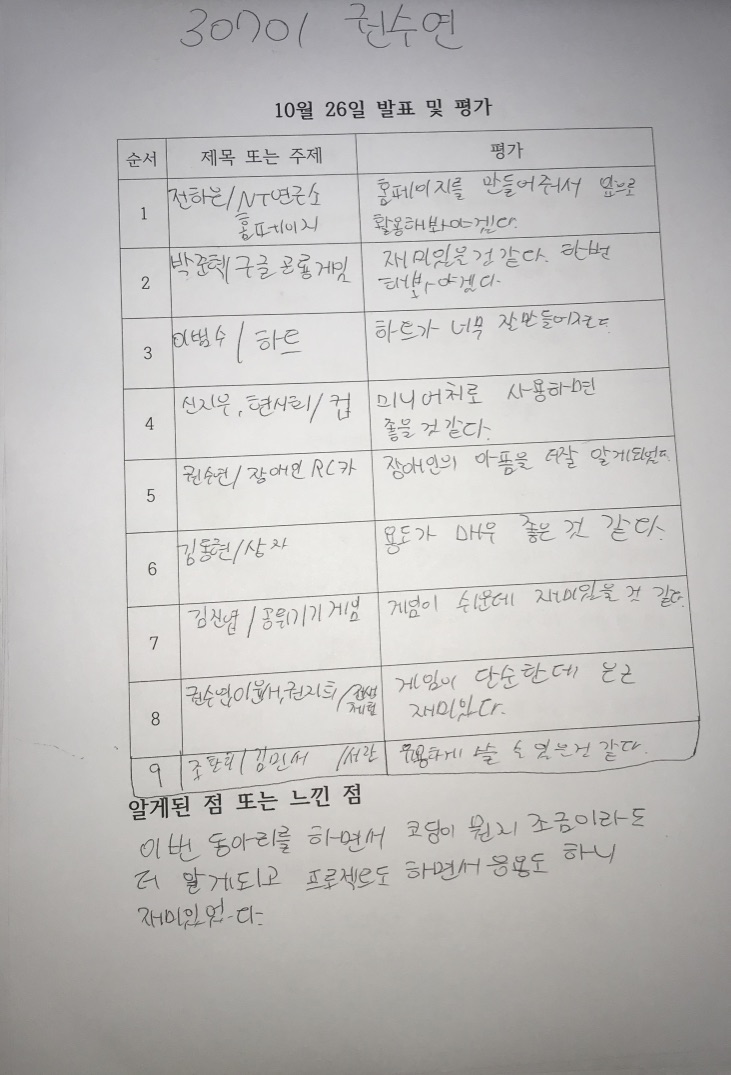 30701 권수연
10월 26일 발표 및 평가
순서 제목 또는 주제 평가
1 전하은/NT연구소
홈페이지
홈페이지를 만들어줘서 앞으로
활용해봐야겠다.
2 박준혁/구글 공룡게임
재미있을것 같다. 한번
해봐야겠다.
3 이범수/하트
하트가 너무 잘만들어졌다
4 신지우, 현서희/컵
미니어처로 사용하면
좋을 것 같다.
5 권수연/장애인RC카
장애인의 아픔을 더잘 알게되었다
6 김동현/상자
용도가 매우 좋은 것 같다.
7 김진엽/공위기기 게임
게임이 쉬운데 재미있을 것 같다.
8 권수연,이윤서,권지희/
게임이 단순한데 은근
재미있다.
9 김민서 /서랍
유용하게 쓸 수 있는것 같다.
알게된 점 또는 느낀 점
이번 동아리를 하면서 코딩이 뭔지 조금이라도
더 알게되고 프로젝트도 하면서 응용도 하니
재미있었다.